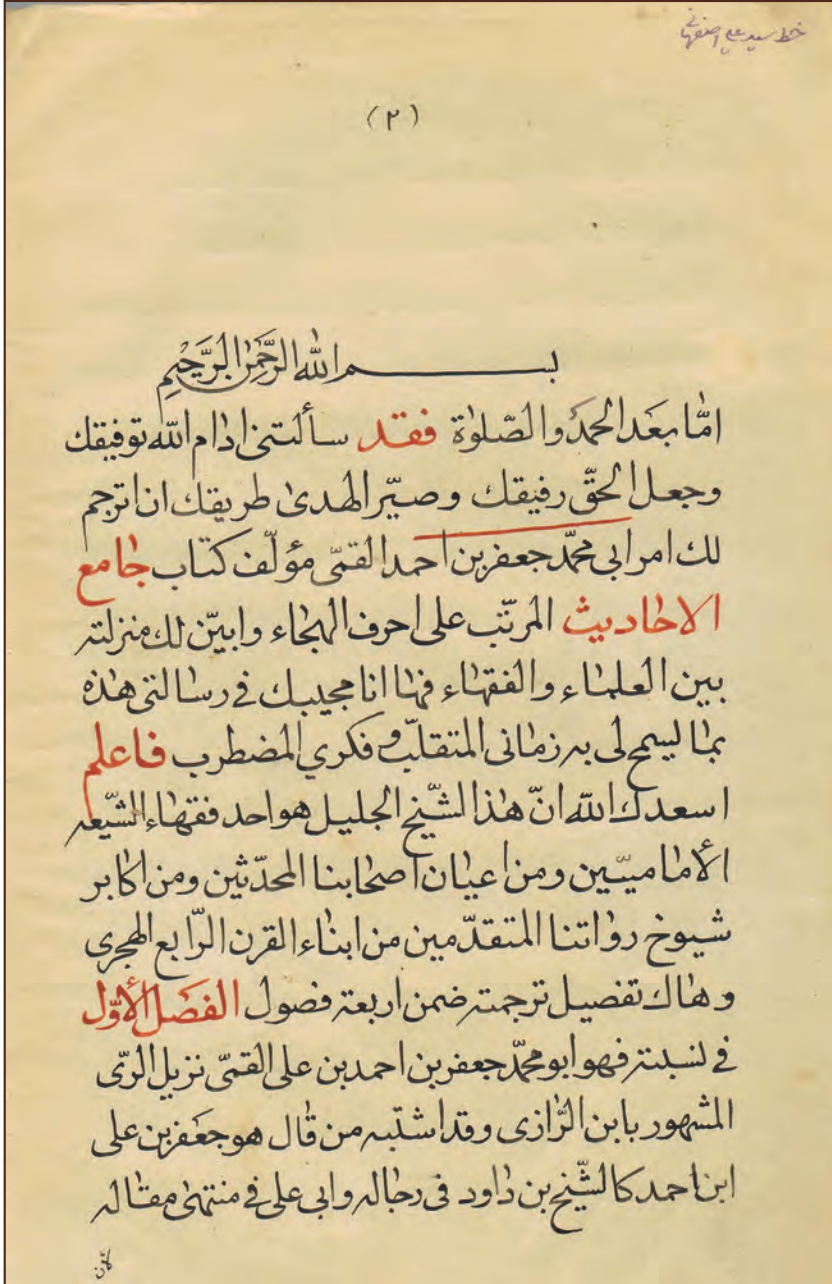 خط سید علی اصفهانی
(٢)
بسم الله الرَّحْمٰنِ الرَّحيْمِ
امّا بعَد الحمَدُ والصّلوٰة فقد سألتنى ادام الله توفيقك
وجعل الحقّ رفيقك وصيّر الهدىٰ طريقك ان اترجم
لك امر ابى محمّد جعفر بن احمد القمّى مؤلّف كتاب جٰامع
الاحٰاديث المرتّب على احرف الهجٰاء وابيّن لك منزلته
بين العلمٰاء والفقهٰاء فهٰا انا مجيبك فى رسٰالتى هٰذه
بمٰا ليسمح لى به زمٰانى المتقلّب وفكري المضطرب فاعلم
اسعدك الله انّ هٰذا الشّيخ الجليل هو احد فقهٰاء الشّيعه
الأمٰاميّين ومن اعيٰان اصحٰابنا المحدّثين ومن اكٰابر
شيوخ روٰاتنا المتقدّمين من ابنٰاء القرن الرّابع الهجرى
وهٰاك تفصيل ترجمته ضمن اربعة فصول الفصَل الأوّل
فى نسبته فهو ابو محمّد جعفر بن احمد بن على القمّى نزيل الرّى
المشهور بابن الرّٰازى وقد اشتبه من قٰال هو جعَفر بن على
ابن احمد كالشّيخ بن دٰاود فى رجٰاله وابى على فى منتهىٰ مقٰاله
لأنّ